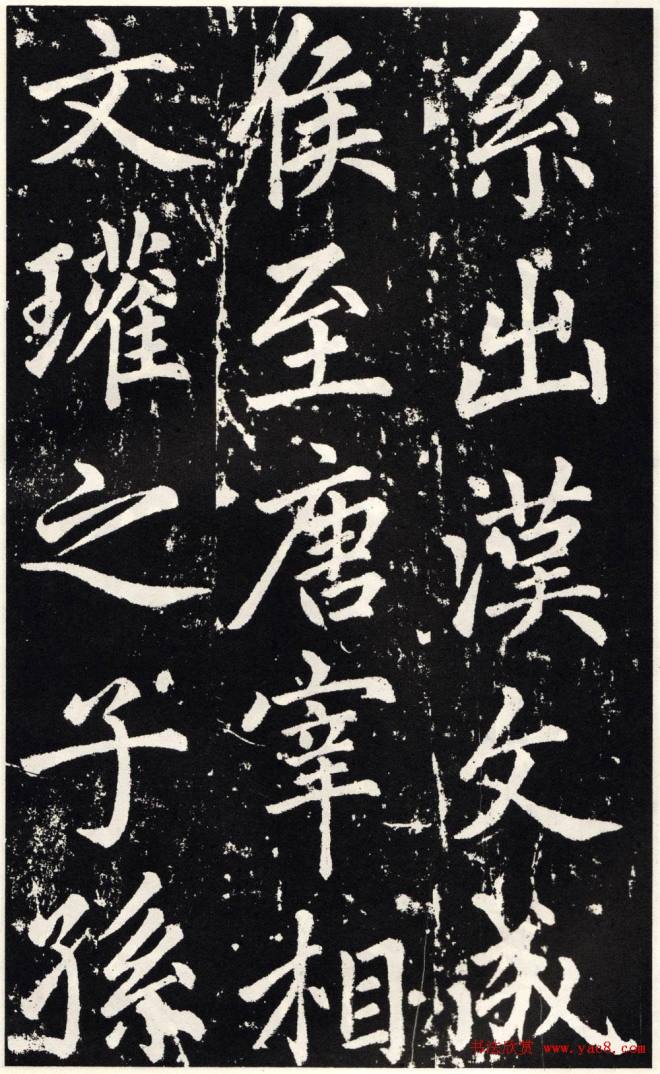 系出漢文成
侯至唐宰相
文瓘之子孫
书法欣赏 www.yac8.com